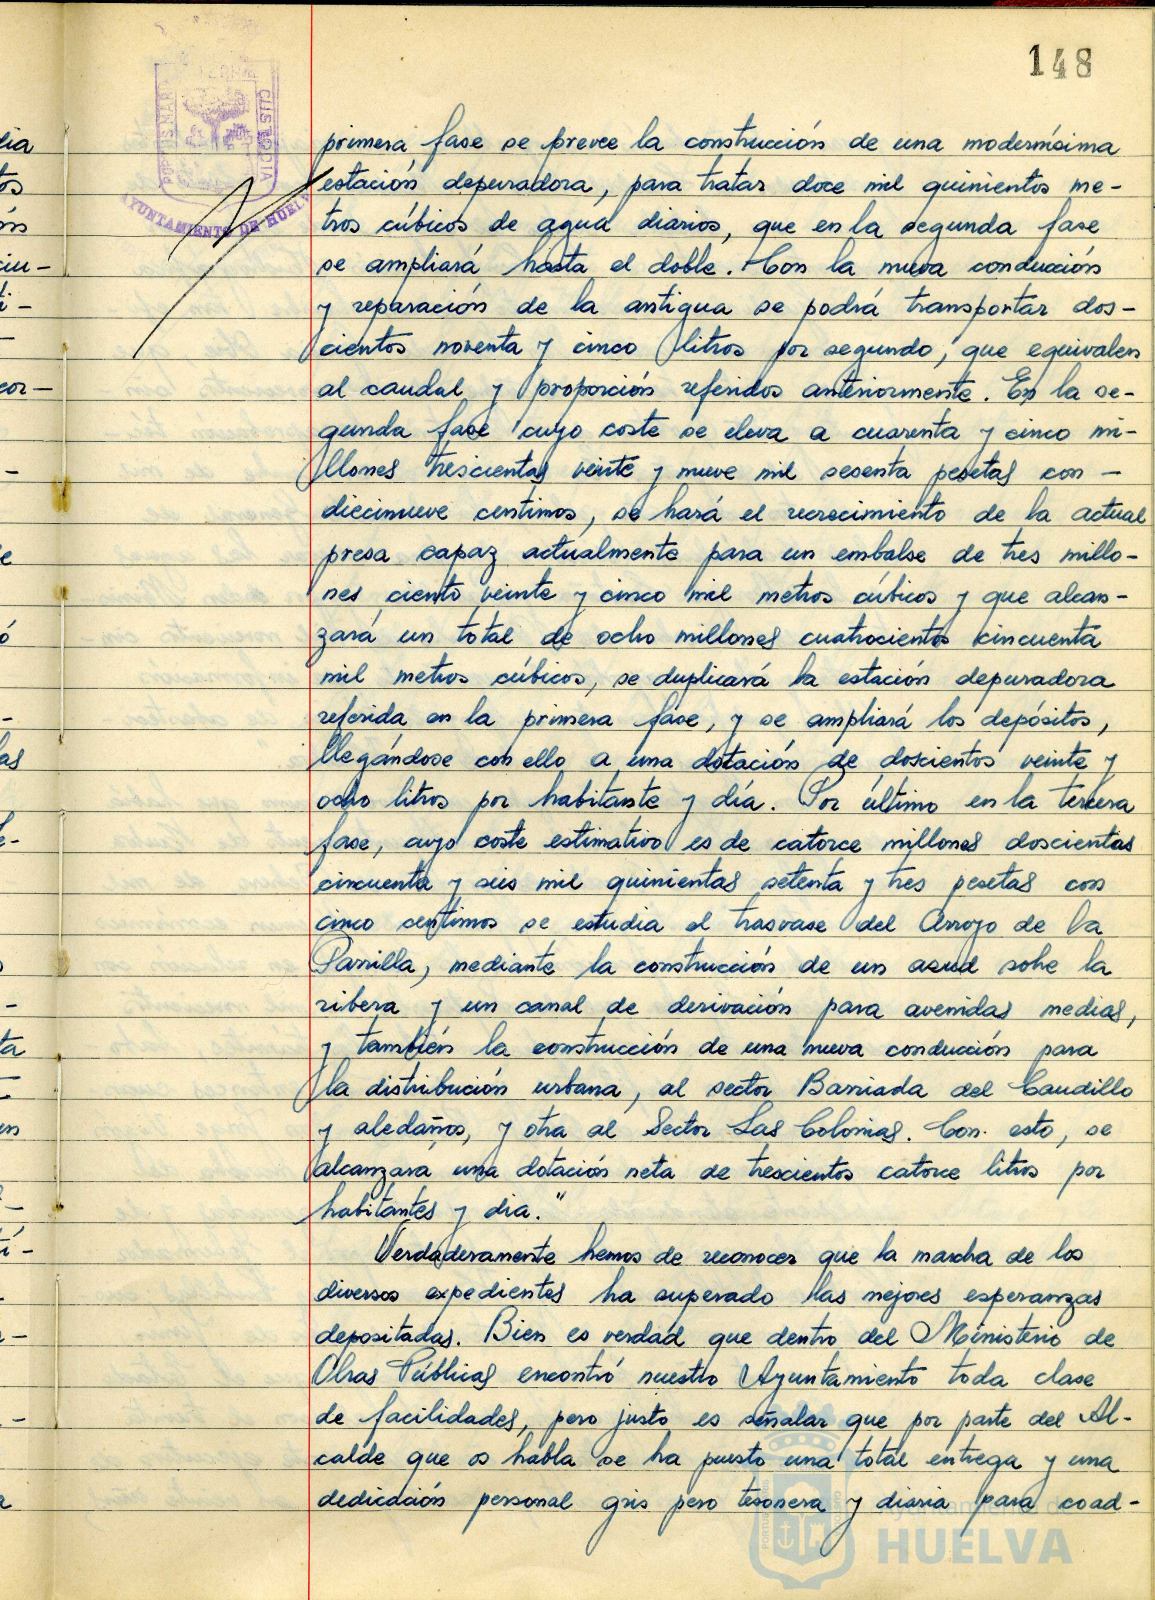 148
AYUNTAMIENTO DE HUELVA
CUSTODIA
primera fase se prevee la construcción de una modernísima
estación depuradora, para tratar doce mil quinientos me-
tros cúbicos de agua diarios, que en la segunda fase
se ampliará hasta el doble. Con la nueva conducción
y reparación de la antigua se podrá transportar dos-
cientos noventa y cinco litros por segundo, que equivalen
al caudal y proporción referidos anteriormente. En la se-
gunda fase cuyo coste se eleva a cuarenta y cinco mi-
llones trescientas veinte y nueve mil sesenta pesetas con -
diecinueve centimos, se hará el recrecimiento de la actual
presa capaz actualmente para un embalse de tres millo-
nes ciento veinte y cinco mil metros cúbicos y que alcan-
zará un total de ocho millones cuatrocientos cincuenta
mil metros cúbicos, se duplicará la estación depuradora
referida en la primera fase, y se ampliará los depósitos,
llegándose con ello a una dotación de doscientos veinte y
ocho litros por habitante y día. Por último en la tercera
fase, cuyo coste estimativo es de catorce millones doscientas
cincuenta y seis mil quinientas setenta y tres pesetas con
cinco centimos se estudia el trasvase del Arroyo de la
Parrilla, mediante la construcción de un azud sobre la
ribera y un canal de derivación para avenidas medias,
y también la construcción de una nueva conducción para
la distribución urbana, al sector Barriada del Caudillo
y aledaños, y otra al Sector Las Colonias. Con esto, se
alcanzará una dotación neta de trescientos catorce litros por
habitantes y dia."
Verdaderamente hemos de reconocer que la marcha de los
diversos expedientes ha superado las mejores esperanzas
depositadas. Bien es verdad que dentro del Ministerio de
Obras Públicas encontró nuestro Ayuntamiento toda clase
de facilidades, pero justo es señalar que por parte del Al-
calde que os habla se ha puesto una total entrega y una
dedicación personal gris pero tesonera y diaria para coad-
Ayuntamiento de
HUELVA